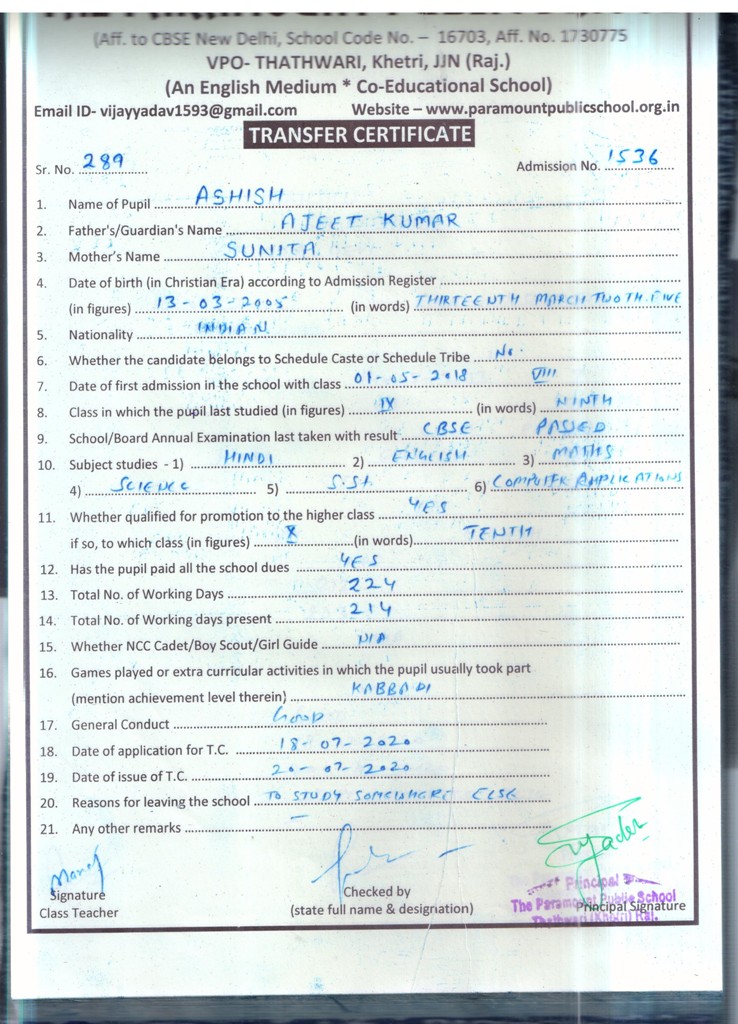 (Aff. to CBSE New Delhi, School Code No. – 16703, Aff. No. 1730775
VPO- THATHWARI, Khetri, JJN (Raj.)
(An English Medium * Co-Educational School)
Email ID- vijayyadav1593@gmail.com Website – www.paramountpublicschool.org.in
TRANSFER CERTIFICATE
Sr. No. 289 Admission No. 1536
1. Name of Pupil ASHISH
2. Father's/Guardian's Name AJEET KUMAR
3. Mother's Name SUNITA
4. Date of birth (in Christian Era) according to Admission Register
(in figures) 13-03-2005 (in words) THIRTEENTH MARCH TWO TH. FIVE
5. Nationality INDIAN
6. Whether the candidate belongs to Schedule Caste or Schedule Tribe No.
7. Date of first admission in the school with class 01-05-2018 VIII
8. Class in which the pupil last studied (in figures) IX (in words) NINTH
9. School/Board Annual Examination last taken with result CBSE PASSED
10. Subject studies - 1) HINDI 2) ENGLISH 3) MATHS
4) SCIENCE 5) S.St. 6) COMPUTER APPLICATIONS
11. Whether qualified for promotion to the higher class YES
if so, to which class (in figures) X (in words) TENTH
12. Has the pupil paid all the school dues YES
13. Total No. of Working Days 224
14. Total No. of Working days present 214
15. Whether NCC Cadet/Boy Scout/Girl Guide N/A
16. Games played or extra curricular activities in which the pupil usually took part
(mention achievement level therein) KABBADI
17. General Conduct GOOD
18. Date of application for T.C. 18-07-2020
19. Date of issue of T.C. 20-07-2020
20. Reasons for leaving the school TO STUDY SOMEWHERE ELSE
21. Any other remarks –
Signature
Class Teacher
Checked by
(state full name & designation)
Principal
The Paramount Public School
Principal Signature
Thathwari (Khetri) Raj.